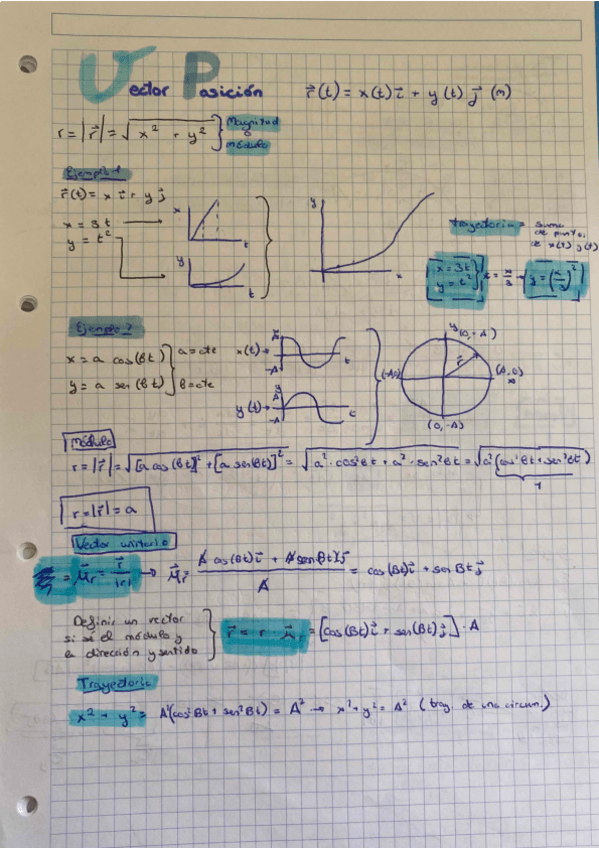 Vector Posición r⃗(t) = x(t) i⃗ + y(t) j⃗ (m)
r = |r⃗| = √(x² + y²) } Magnitud o módulo
Ejemplo 1
r⃗(t) = x i⃗ + y j⃗
x = 3t
y = t²
x
t
y
t
y
x
trayectoria = suma
de puntos
de x(t) y(t)
x = 3t
y = t²
t = x/3 → y = (x/3)²
Ejemplo 2
x = a cos(Bt) } a = cte
y = a sen(Bt) } B = cte
x(t) → A -A t
y(t) → y A -A t
y (0, +A)
(-A, 0) r⃗ (A, 0)
x
(0, -A)
Módulo
r = |r⃗| = √([a cos(Bt)]² + [a sen(Bt)]²) = √(a² · cos²Bt + a² · sen²Bt) = √(a² (cos²Bt + sen²Bt))
1
r = |r⃗| = a
Vector unitario
= μ⃗r = r⃗/|r| → μ⃗r = (A cos(Bt) i⃗ + A sen(Bt) j⃗)/A = cos(Bt) i⃗ + sen Bt j⃗
Definir un vector
si sé el módulo y
la dirección y sentido
r⃗ = r · μ⃗r = [cos(Bt) i⃗ + sen(Bt) j⃗] · A
Trayectoria
x² + y² = A²(cos²Bt + sen²Bt) = A² → x² + y² = A² (tray. de una circun.)